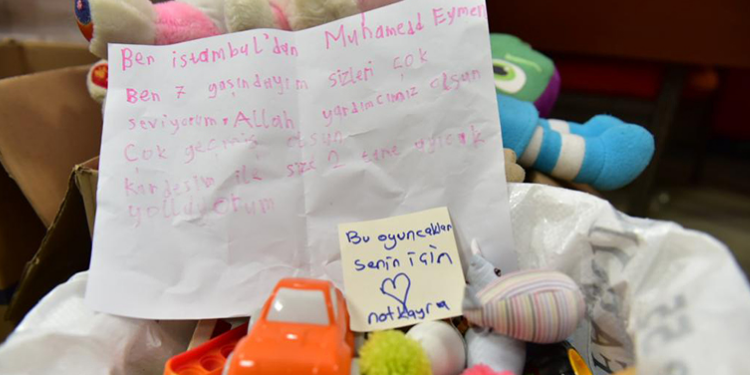 Ben istanbul'dan Muhamedd Eymen
Ben 7 yaşındayım sizleri çok
seviyorum. Allah yardımcımız olsun
Çok geçmiş olsun
kardeşim ile size 2 tane oyuncak
yolluyorum
Bu oyuncaklar
senin için
notkayra